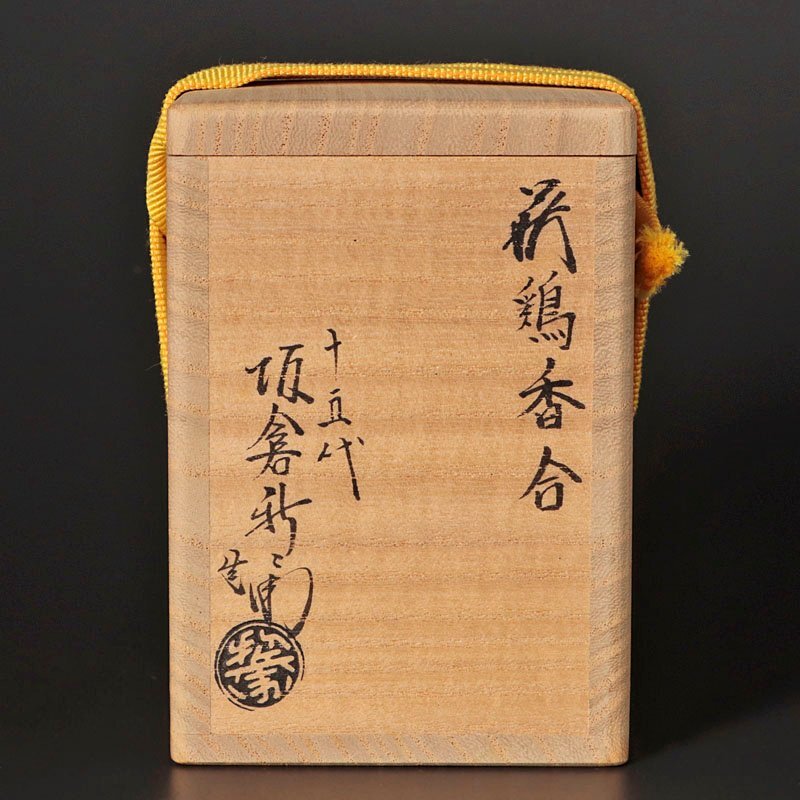 萩鶏香合
十五代
坂倉新兵衛
造